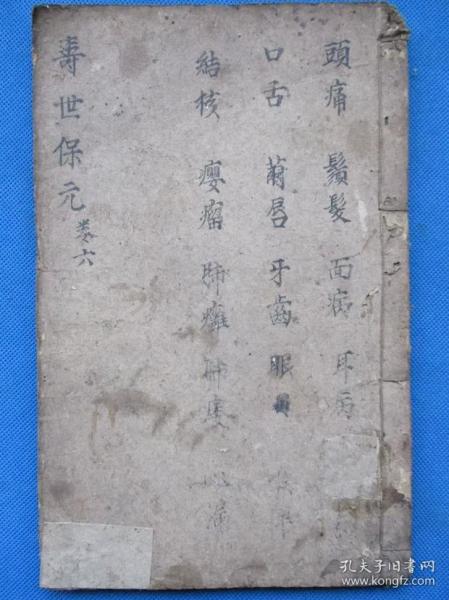 頭痛 鬚髮 面病 耳病
口舌 唇 牙齒 眼目
結核 癭瘤 肺癰 肺痿 心
壽世保元 卷六
孔夫子旧书网
www.kongfz.com